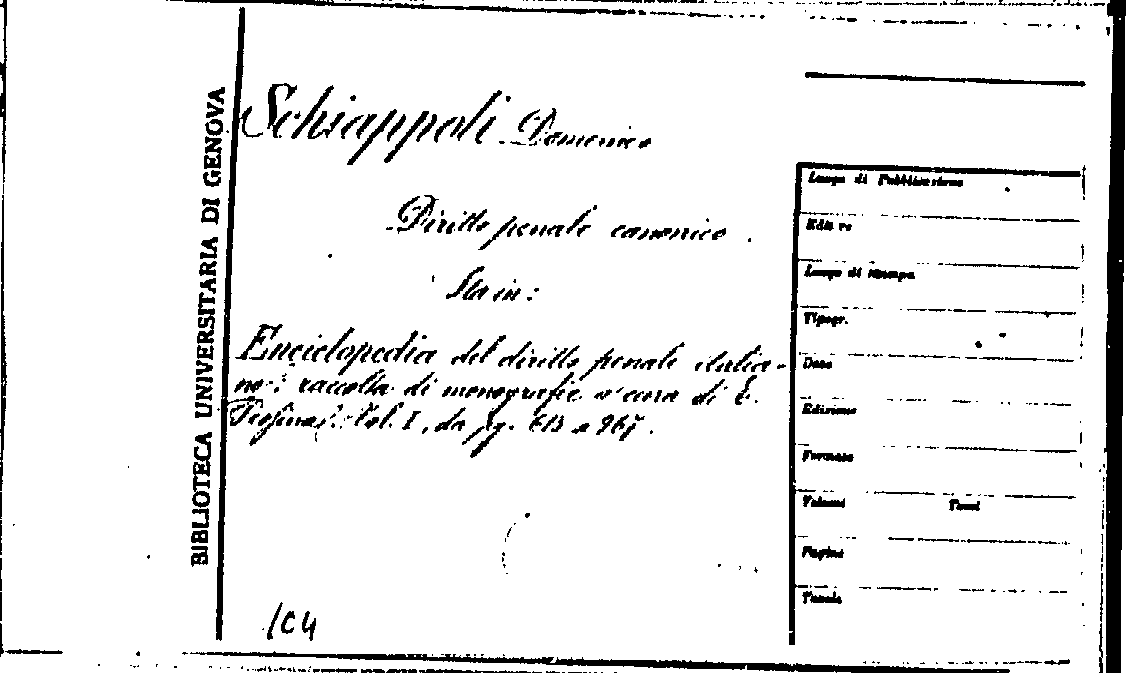 BIBLIOTECA UNIVERSITARIA DI GENOVA
Schiappoli Domenico
Diritto penale canonico.
Sta in:
Enciclopedia del diritto penale italia-
no: raccolta di monografie a cura di E.
Vol. I, da pg. 613 a 967.
/C4
Luogo di Pubblicazione
Editore
Luogo di stampa
Tipogr.
Data
Edizione
Formato
Volumi Tomi
Pagine
Tavole